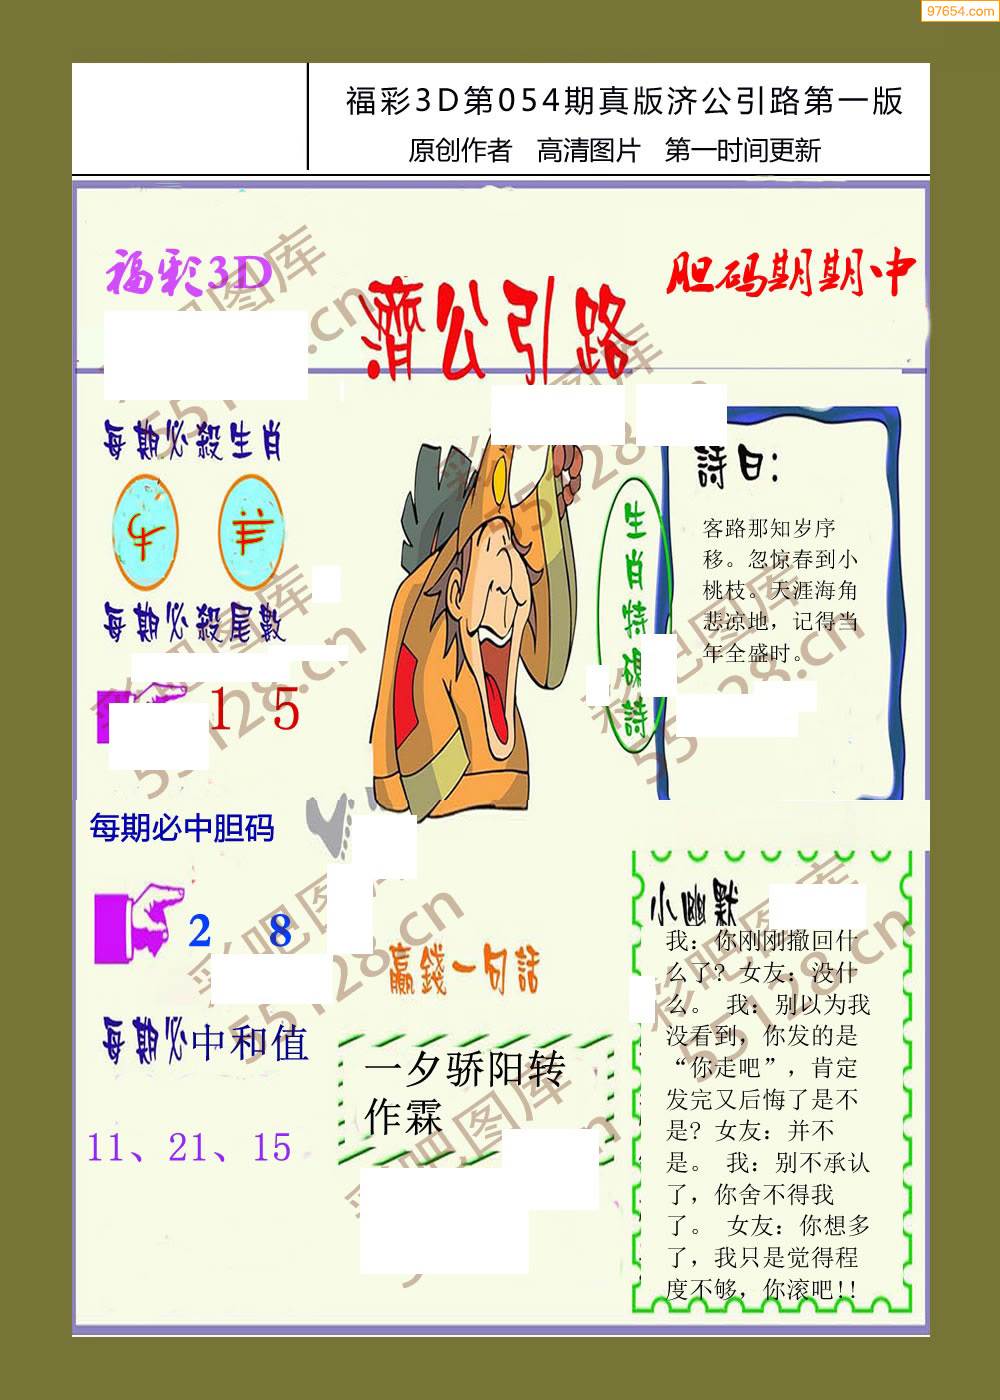 97654.com
福彩3D第054期真版济公引路第一版
原创作者 高清图片 第一时间更新
福彩3D
濟公引路
胆码期期中
每期必殺生肖
牛 羊
每期必殺尾數
1 5
每期必中胆码
2 8
每期必中和值
11、21、15
生肖特碼詩
詩曰:
客路那知岁序
移。忽惊春到小
桃枝。天涯海角
悲凉地，记得当
年全盛时。
赢錢一句話
一夕骄阳转
作霖
小幽默
我：你刚刚撤回什
么了？女友：没什
么。 我：别以为我
没看到，你发的是
“你走吧”，肯定
发完又后悔了是不
是？女友：并不
是。 我：别不承认
了，你舍不得我
了。 女友：你想多
了，我只是觉得程
度不够，你滚吧!!
彩吧图库
55128.cn
彩吧图库
55128.cn
彩吧图库
55128.cn
彩吧图库
55128.cn